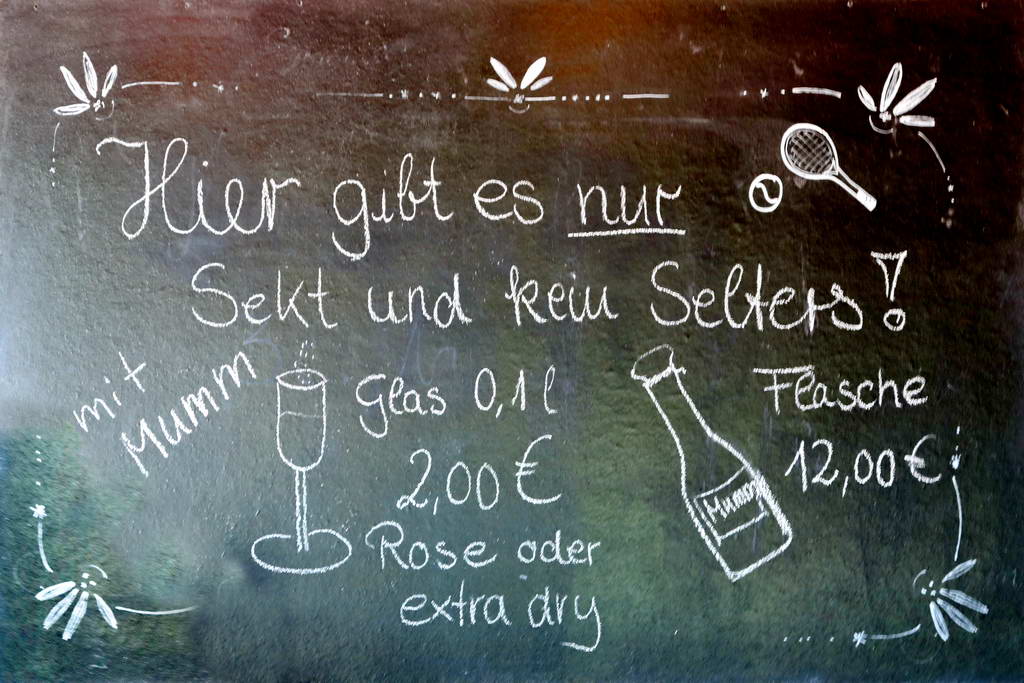 Hier gibt es nur
Sekt und kein Selters!
mit
Mumm
Glas 0,1 l
2,00 €
Rose oder
extra dry
Mumm
Flasche
12,00 €